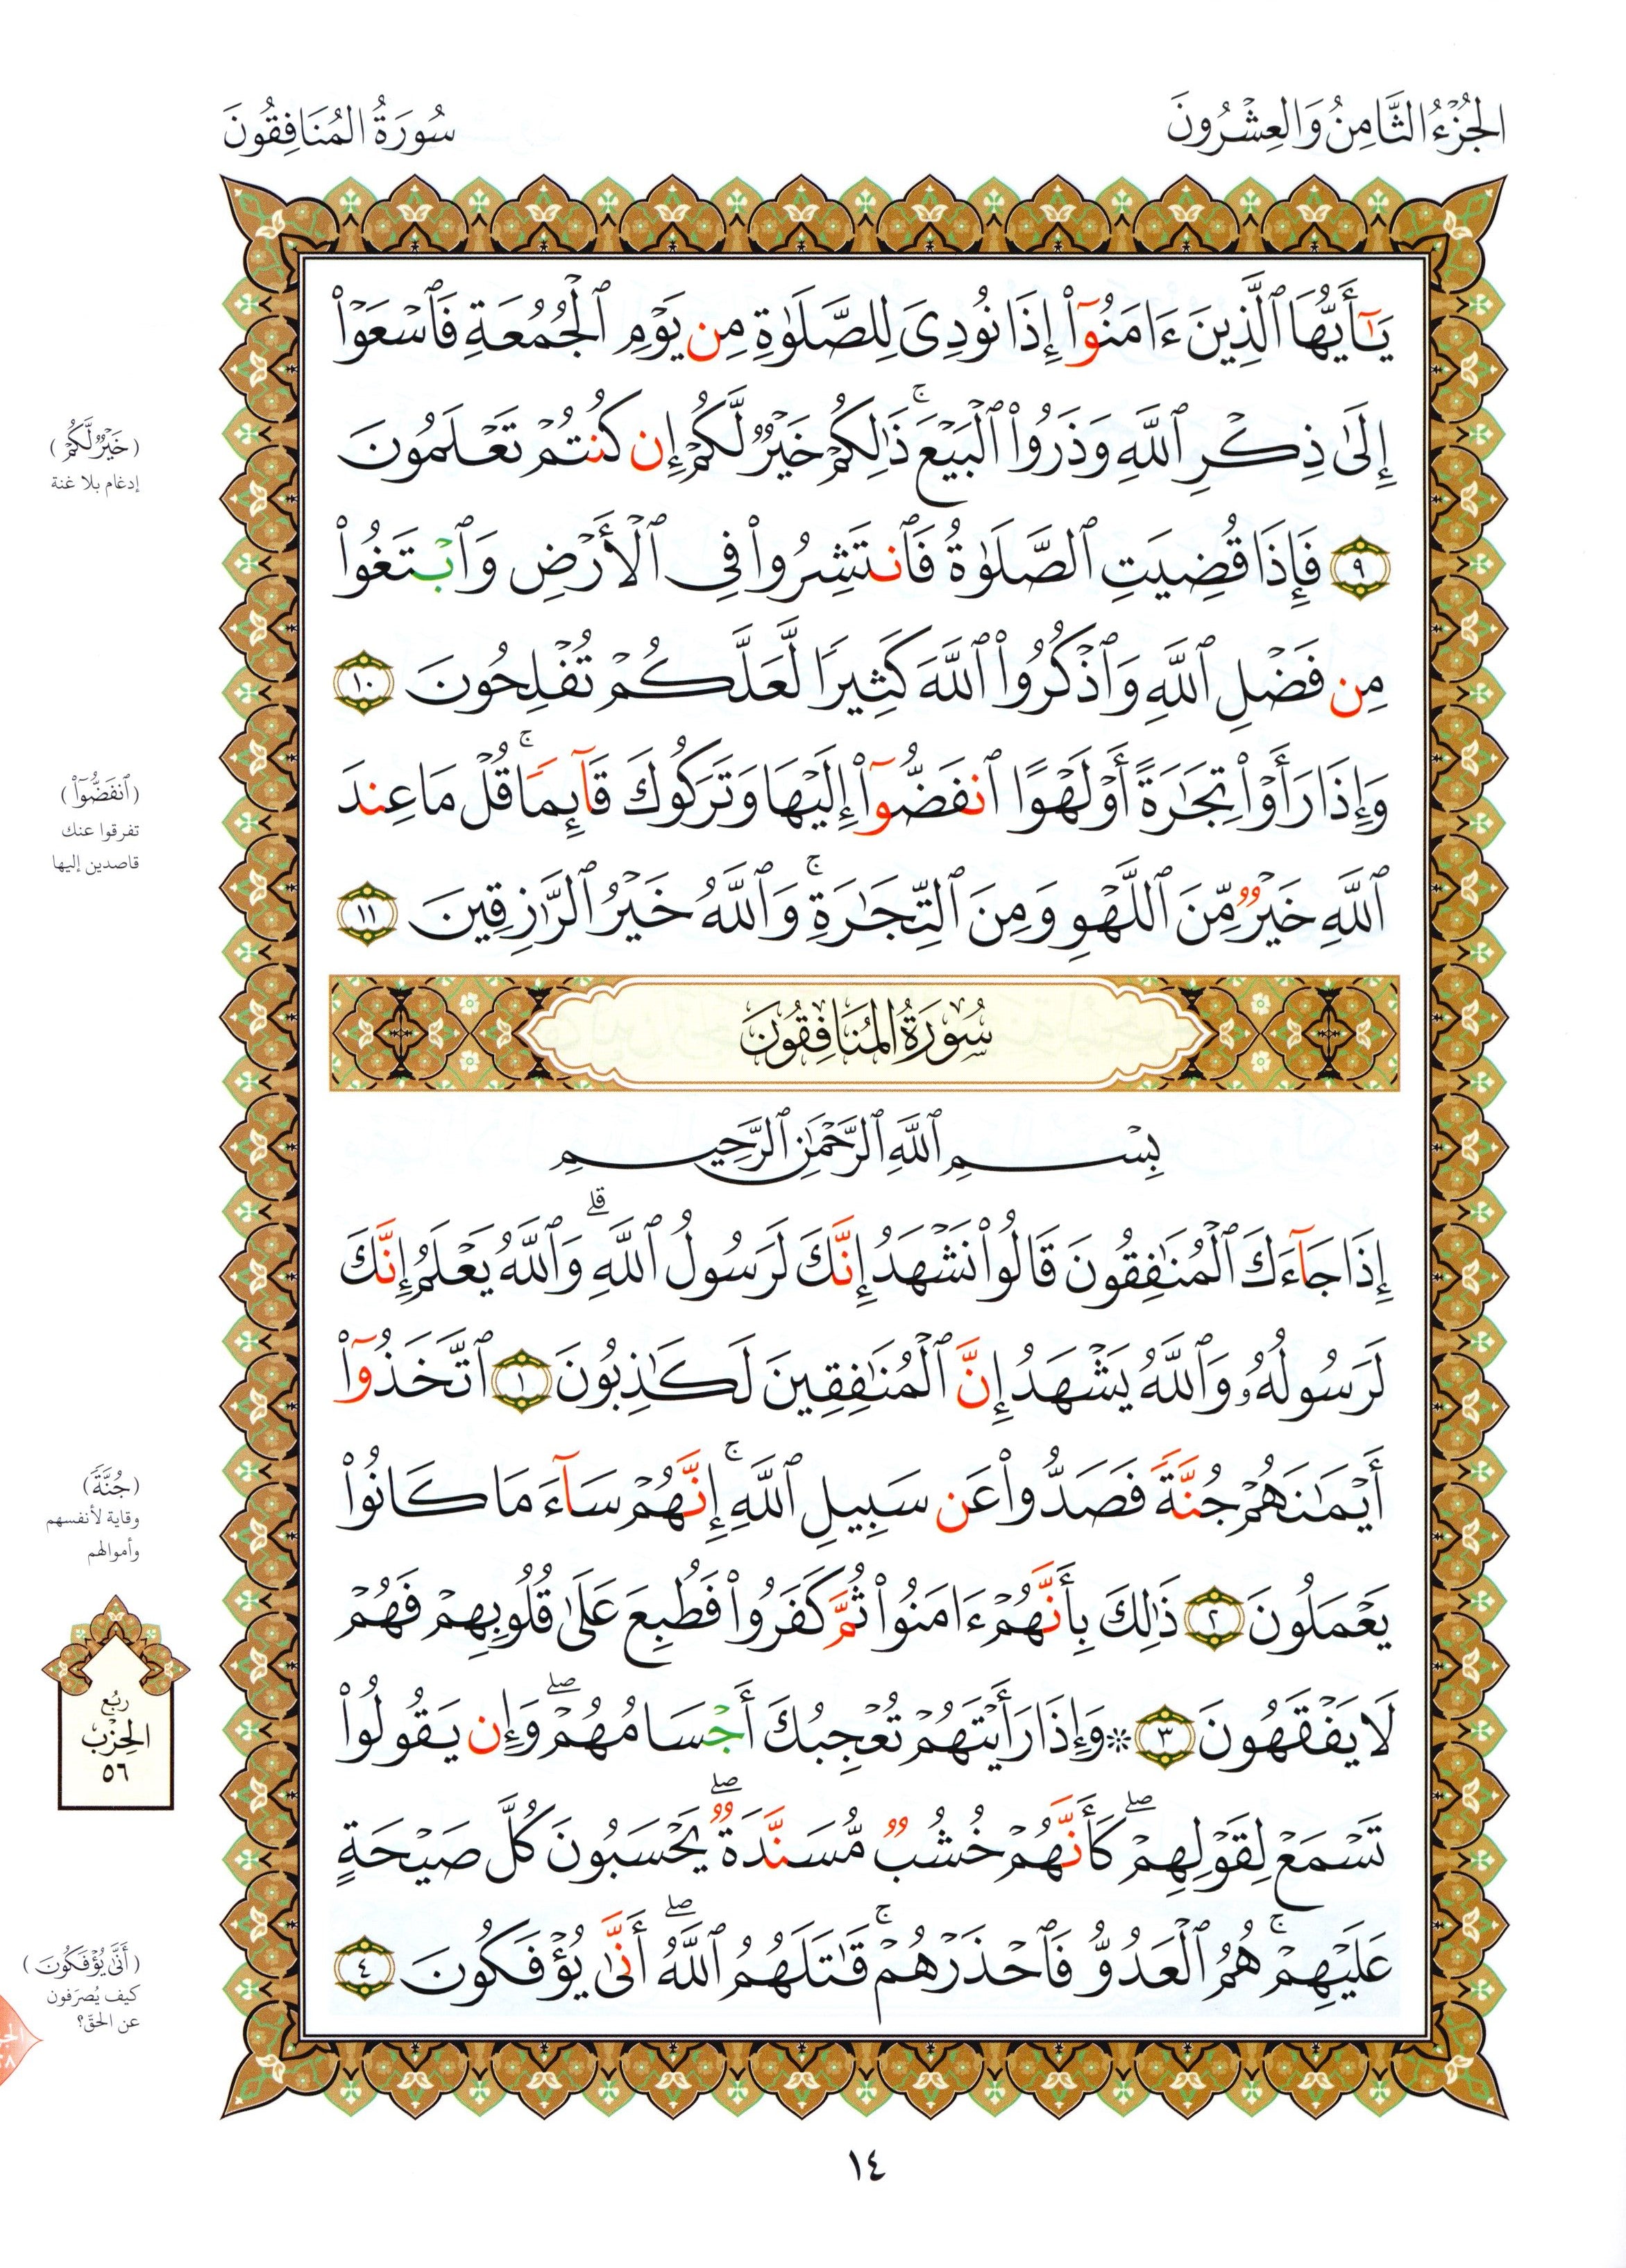 الجُزْءُ الثَّامِنُ وَالعِشْرُونَ
سُورَةُ المُنَافِقُونَ
يَٰٓأَيُّهَا ٱلَّذِينَ ءَامَنُوٓا۟ إِذَا نُودِىَ لِلصَّلَوٰةِ مِن يَوْمِ ٱلْجُمُعَةِ فَٱسْعَوْا۟
إِلَىٰ ذِكْرِ ٱللَّهِ وَذَرُوا۟ ٱلْبَيْعَ ۚ ذَٰلِكُمْ خَيْرٌ لَّكُمْ إِن كُنتُمْ تَعْلَمُونَ
٩ فَإِذَا قُضِيَتِ ٱلصَّلَوٰةُ فَٱنتَشِرُوا۟ فِى ٱلْأَرْضِ وَٱبْتَغُوا۟
مِن فَضْلِ ٱللَّهِ وَٱذْكُرُوا۟ ٱللَّهَ كَثِيرًا لَّعَلَّكُمْ تُفْلِحُونَ ١٠
وَإِذَا رَأَوْا۟ تِجَٰرَةً أَوْ لَهْوًا ٱنفَضُّوٓا۟ إِلَيْهَا وَتَرَكُوكَ قَآئِمًا ۚ قُلْ مَا عِندَ
ٱللَّهِ خَيْرٌ مِّنَ ٱللَّهْوِ وَمِنَ ٱلتِّجَٰرَةِ ۚ وَٱللَّهُ خَيْرُ ٱلرَّٰزِقِينَ ١١
سُورَةُ المُنَافِقُونَ
بِسْمِ ٱللَّهِ ٱلرَّحْمَٰنِ ٱلرَّحِيمِ
إِذَا جَآءَكَ ٱلْمُنَٰفِقُونَ قَالُوا۟ نَشْهَدُ إِنَّكَ لَرَسُولُ ٱللَّهِ ۗ وَٱللَّهُ يَعْلَمُ إِنَّكَ
لَرَسُولُهُۥ وَٱللَّهُ يَشْهَدُ إِنَّ ٱلْمُنَٰفِقِينَ لَكَٰذِبُونَ ١ ٱتَّخَذُوٓا۟
أَيْمَٰنَهُمْ جُنَّةً فَصَدُّوا۟ عَن سَبِيلِ ٱللَّهِ ۚ إِنَّهُمْ سَآءَ مَا كَانُوا۟
يَعْمَلُونَ ٢ ذَٰلِكَ بِأَنَّهُمْ ءَامَنُوا۟ ثُمَّ كَفَرُوا۟ فَطُبِعَ عَلَىٰ قُلُوبِهِمْ فَهُمْ
لَا يَفْقَهُونَ ٣ * وَإِذَا رَأَيْتَهُمْ تُعْجِبُكَ أَجْسَامُهُمْ ۖ وَإِن يَقُولُوا۟
تَسْمَعْ لِقَوْلِهِمْ ۖ كَأَنَّهُمْ خُشُبٌ مُّسَنَّدَةٌ ۖ يَحْسَبُونَ كُلَّ صَيْحَةٍ
عَلَيْهِمْ ۚ هُمُ ٱلْعَدُوُّ فَٱحْذَرْهُمْ ۚ قَٰتَلَهُمُ ٱللَّهُ ۖ أَنَّىٰ يُؤْفَكُونَ ٤
(خَيْرٌ لَّكُمْ)
إدغام بلا غنة
(ٱنفَضُّوٓا۟)
تفرقوا عنك
قاصدين إليها
(جُنَّةً)
وقاية لأنفسهم
وأموالهم
ربع
الحِزْب
٥٦
(أَنَّىٰ يُؤْفَكُونَ)
كيف يُصرَفون
عن الحقّ؟
١٤